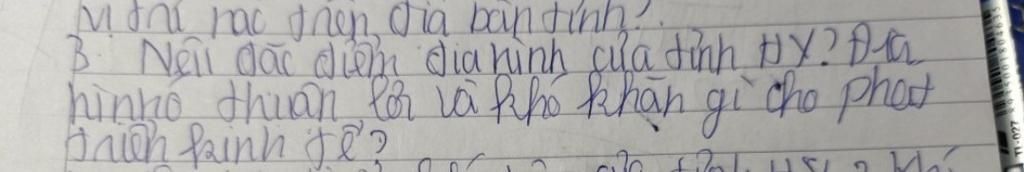 rác trên địa bàn tỉnh?
3. Nêu đặc điểm địa hình của tỉnh HY? Địa
hình có thuận lợi và khó khăn gì cho phát
triển kinh tế?
TI-027